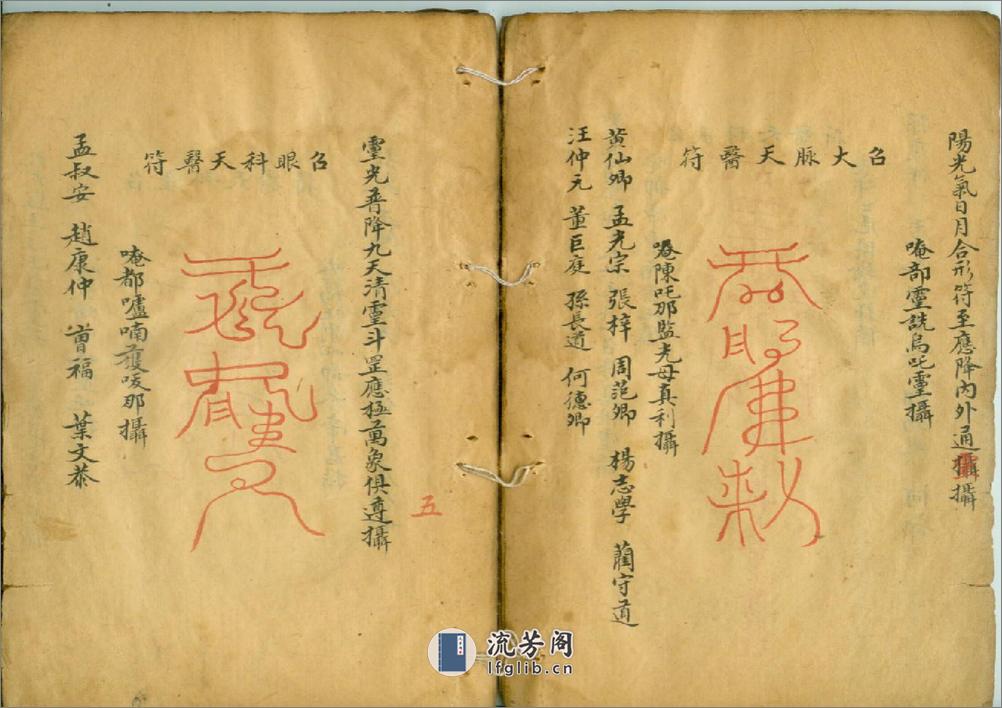 陽光氣日月合形符至應降內外通攝攝
唵部靈詵烏吒靈攝
召大脉天醫符
唵陳吒那監光母真利攝
黄仙卿 孟光宗 張梓 周范卿 楊志學 藺守道
汪仲元 董巨庭 孫長道 何德卿
五
靈光普降九天清靈斗罡應極萬象俱遵攝
召眼科天醫符
唵都嚧喃癹咴那攝
孟叔安 趙康仲 曹福 葉文恭
流芳阁
lfglib.cn